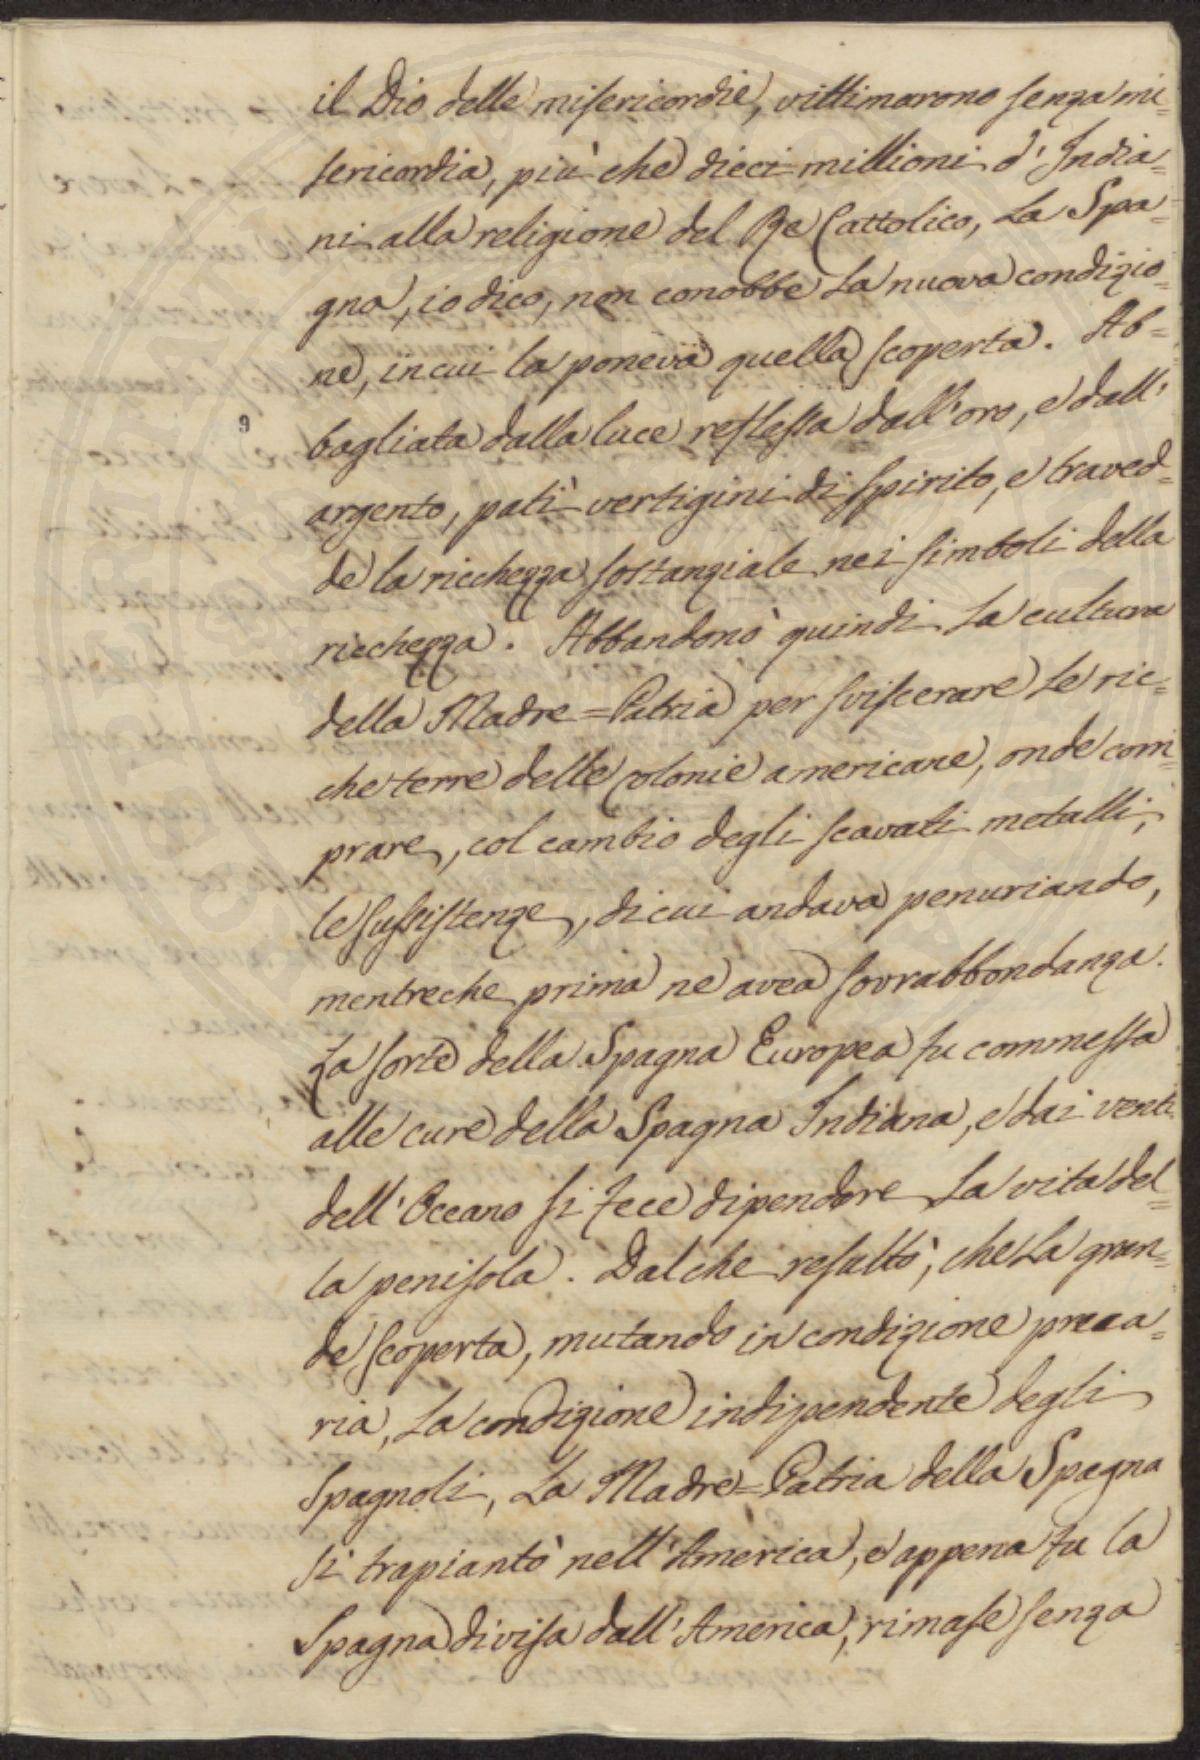 il Dio delle misericordie, vittimarono senza mi=
sericordia, più che dieci millioni d'India=
ni alla religione del Re Cattolico, La Spa=
gna, io dico, non conobbe La nuova condizio=
ne, in cui la poneva quella scoperta. Ab=
9
bagliata dalla luce reflessa dall'oro, e dall'
argento, patì vertigini di spirito, e traved=
de la ricchezza sostanziale nei simboli della
ricchezza. Abbandonò quindi La cultura
della Madre=Patria per sviscerare Le ric=
che terre delle Colonie americane, onde com=
prare, col cambio degli scavati metalli,
le sussistenze, di cui andava penuriando,
mentreche prima ne avea sovrabbondanza.
La sorte della Spagna Europea fu commessa
alle cure della Spagna Indiana, e dai venti
dell'Oceano si fece dipendere La vita del=
la penisola. Dalche resultò, che La gran=
de scoperta, mutando in condizione preca=
ria, La condizione indipendente degli
Spagnoli, La Madre=Patria della Spagna
si trapiantò nell'America, e appena fu la
Spagna divisa dall'America, rimase senza